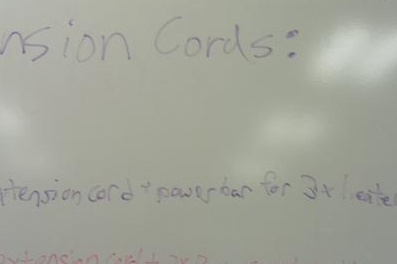 nsion Cords:
xtension cord + power bar for 3x1 exte
extension cord +